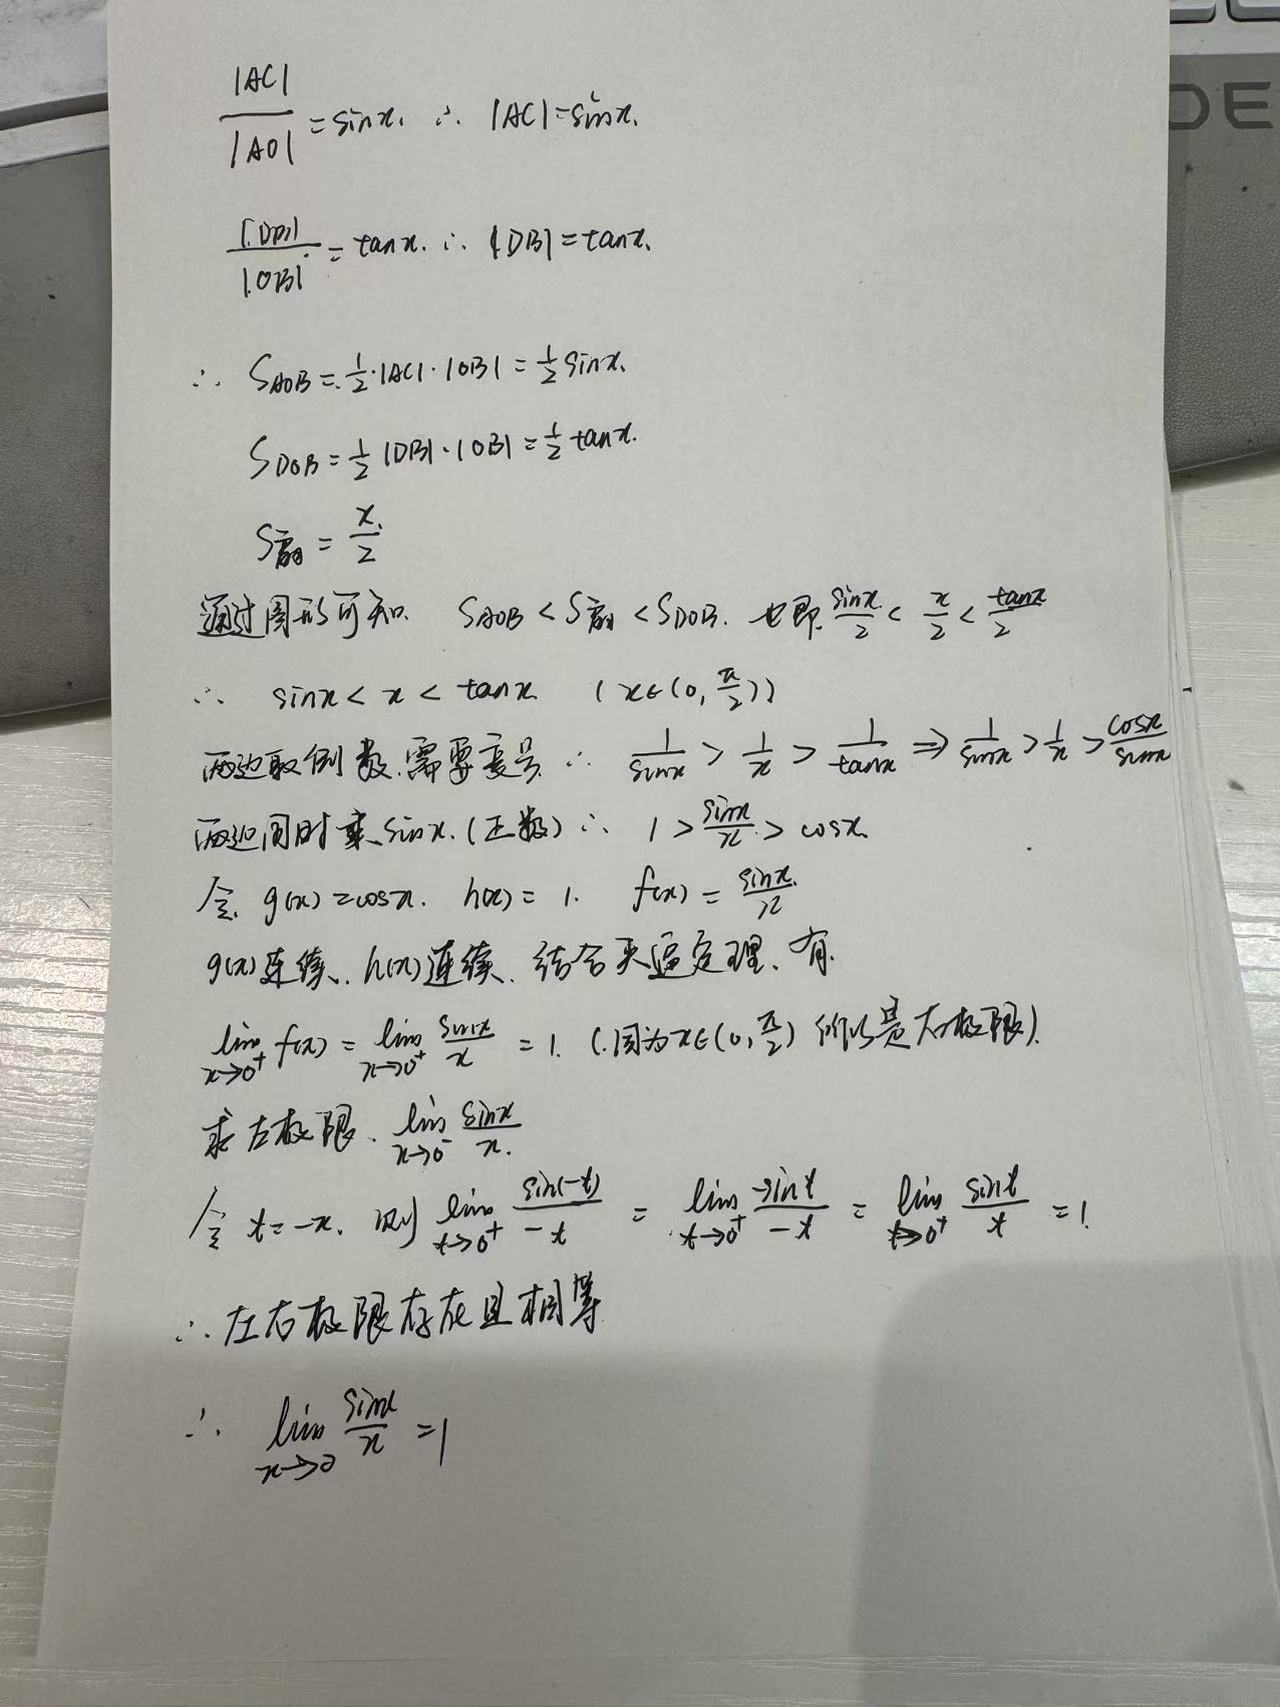 |AC|/|AO| = sinx. ∴ |AC| = sinx.
|DB|/|OB| = tanx. ∴ |DB| = tanx.
∴ S_AOB = 1/2·|AC|·|OB| = 1/2 sinx.
S_DOB = 1/2 |DB|·|OB| = 1/2 tanx.
S扇 = x/2
通过图形可知. S_AOB < S扇 < S_DOB. 也即. sinx/2 < x/2 < tanx/2
∴ sinx < x < tanx (x∈(0, π/2))
两边取倒数.需要变号 ∴ 1/sinx > 1/x > 1/tanx ⇒ 1/sinx > 1/x > cosx/sinx
两边同时乘sinx.(正数) ∴ 1 > sinx/x > cosx.
令 g(x) = cosx. h(x) = 1. f(x) = sinx/x
g(x)连续、h(x)连续、结合夹逼定理、有.
lim x→0⁺ f(x) = lim x→0⁺ sinx/x = 1. (因为x∈(0, π/2) 所以是右极限).
求左极限. lim x→0⁻ sinx/x.
令 t = -x. 则 lim t→0⁺ sin(-t)/-t = lim t→0⁺ -sint/-t = lim t→0⁺ sint/t = 1.
∴ 左右极限存在且相等
∴ lim x→0 sinx/x = 1
DE